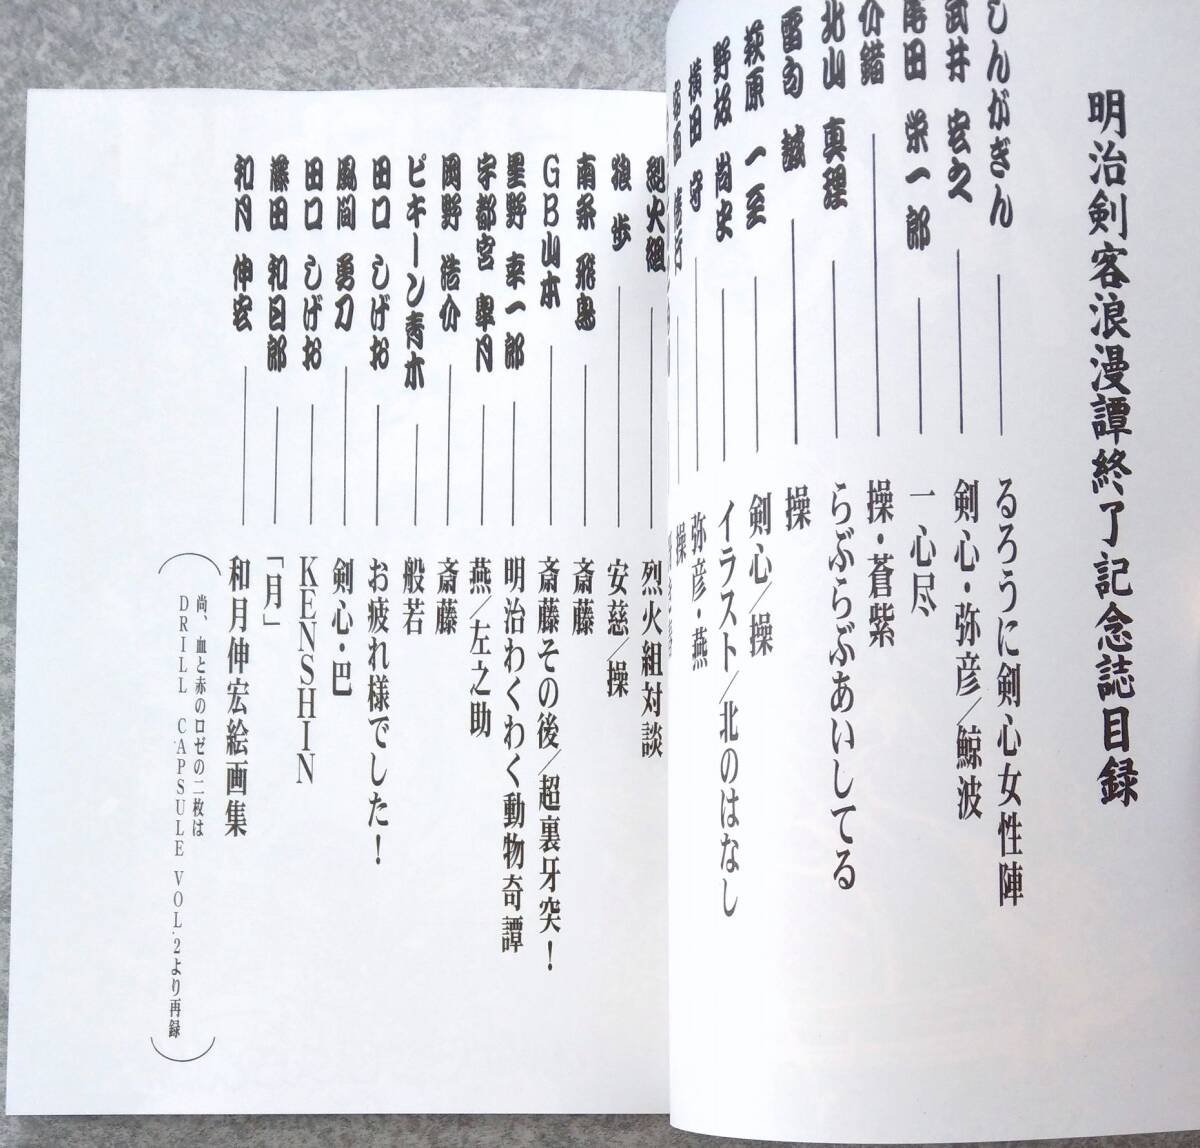 明治剣客浪漫譚終了記念誌目録
しんがぎん――るろうに剣心女性陣
武井 宏之――剣心・弥彦/鯨波
尾田 栄一郎――一心尽
介錯――操・蒼紫
北山 真理――らぶらぶあいしてる
雷句 誠――操
萩原 一至――剣心/操
野坂 尚史――イラスト/北のはなし
横田 守――弥彦・燕
操
烈火組――烈火組対談
狼 歩――安慈/操
南条 飛鳥――斎藤
GB山本――斎藤その後/超裏牙突!
星野 幸一郎――明治わくわく動物奇譚
宇都宮 皐月――燕/左之助
岡野 浩介――斎藤
ピキーン青木――般若
田口 しげお――お疲れ様でした!
風間 勇刀――剣心・巴
田口 しげお――KENSHIN
藤田 和日郎――「月」
和月 伸宏――和月伸宏絵画集
(尚、血と赤のロゼの二枚は
DRILL CAPSULE VOL.2より再録)